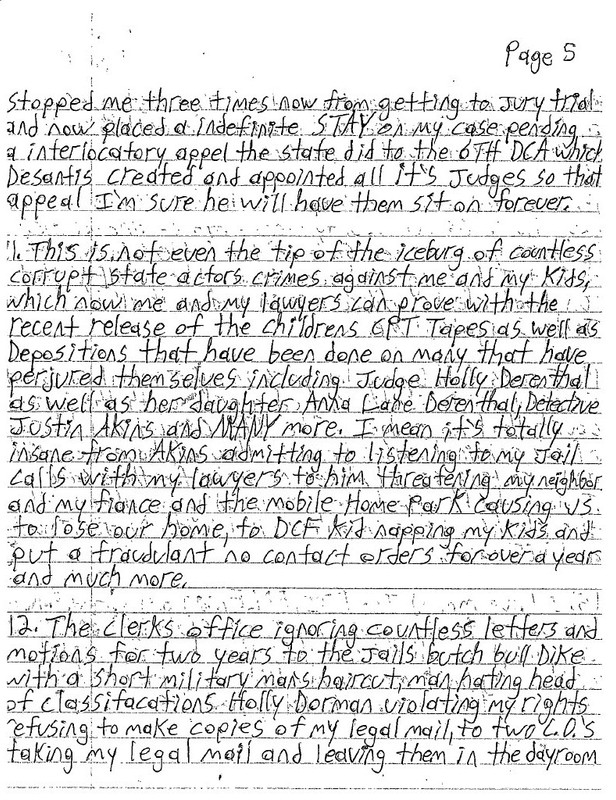 Page 5
Stopped me three times now from getting to Jury trial
and now placed a indefinite STAY on my case pending
a interlocatory appel the state did to the 6TH DCA which
Desantis created and appointed all it's Judges so that
appeal I'm sure he will have them sit on forever.
1. This is not even the tip of the iceburg of countless
corrupt state actors crimes against me and my Kids,
which now me and my lawyers can prove with the
recent release of the childrens CPT Tapes as well as
Depositions that have been done on many that have
perjured themselves including Judge Holly Derenthal
as well as her daughter Anna Lane Derenthal, Detective
Justin Akins and MANY more. I mean it's totally
insane from AKins admitting to listening to my Jail
calls with my lawyers to him threatening my neighbor
and my fiance and the mobile Home Park causing us
to lose our home, to DCF Kidnapping my Kids and
put a fraudulant no contact orders for over a year
and much more.
12. The clerks office ignoring countless letters and
motions for two years to the Jails butch bull Dike
with a short military mans haircut, man hating head
of classifacations Holly Dorman violating my rights
refusing to make copies of my legal mail, to two C.O.'s
taking my legal mail and leaving them in the dayroom